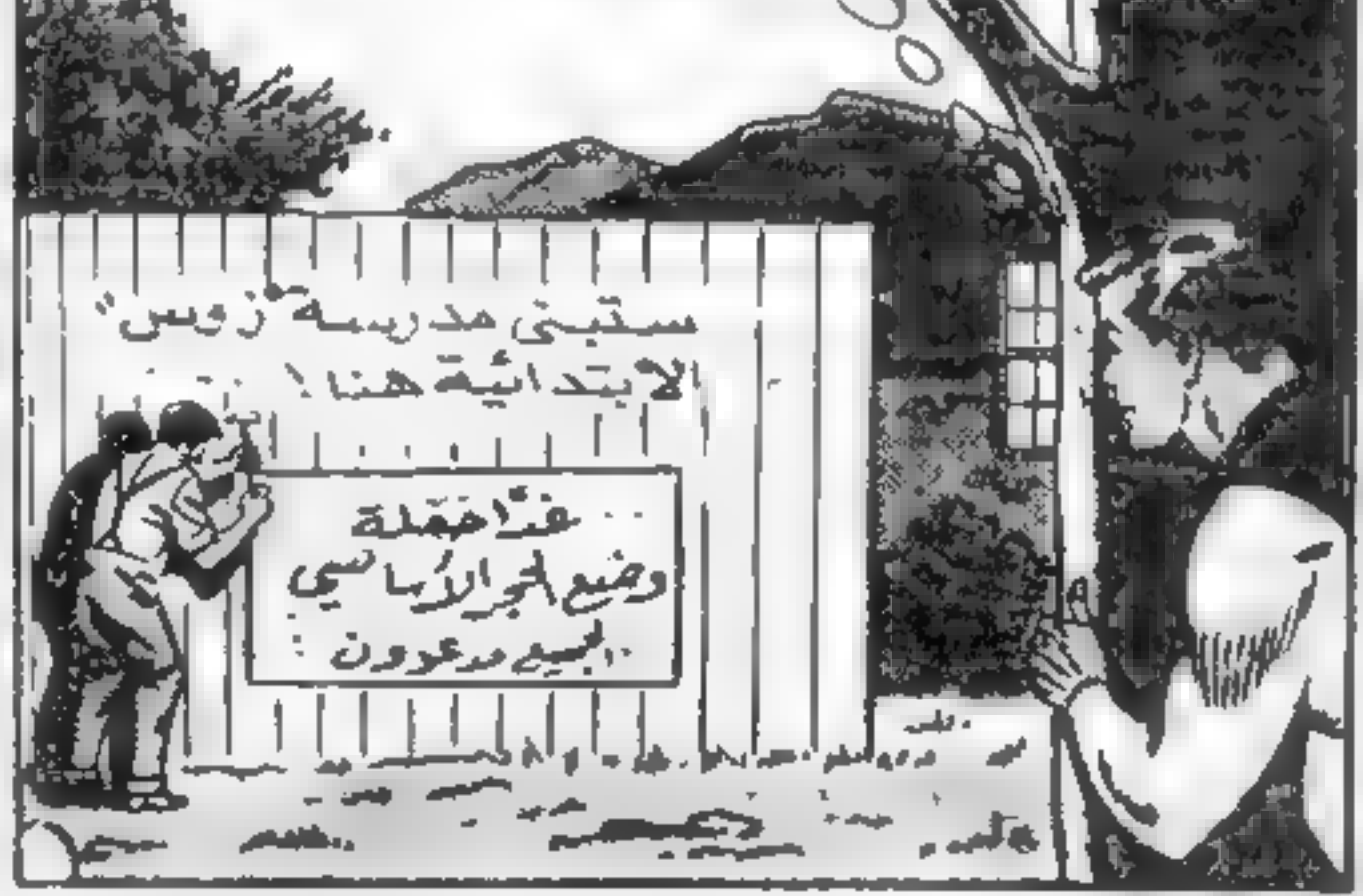 ستبنى مدرسة "زوس"
الابتدائية هنا!
غدًا حفلة
وضع الحجر الأساسي
الجميع مدعوون